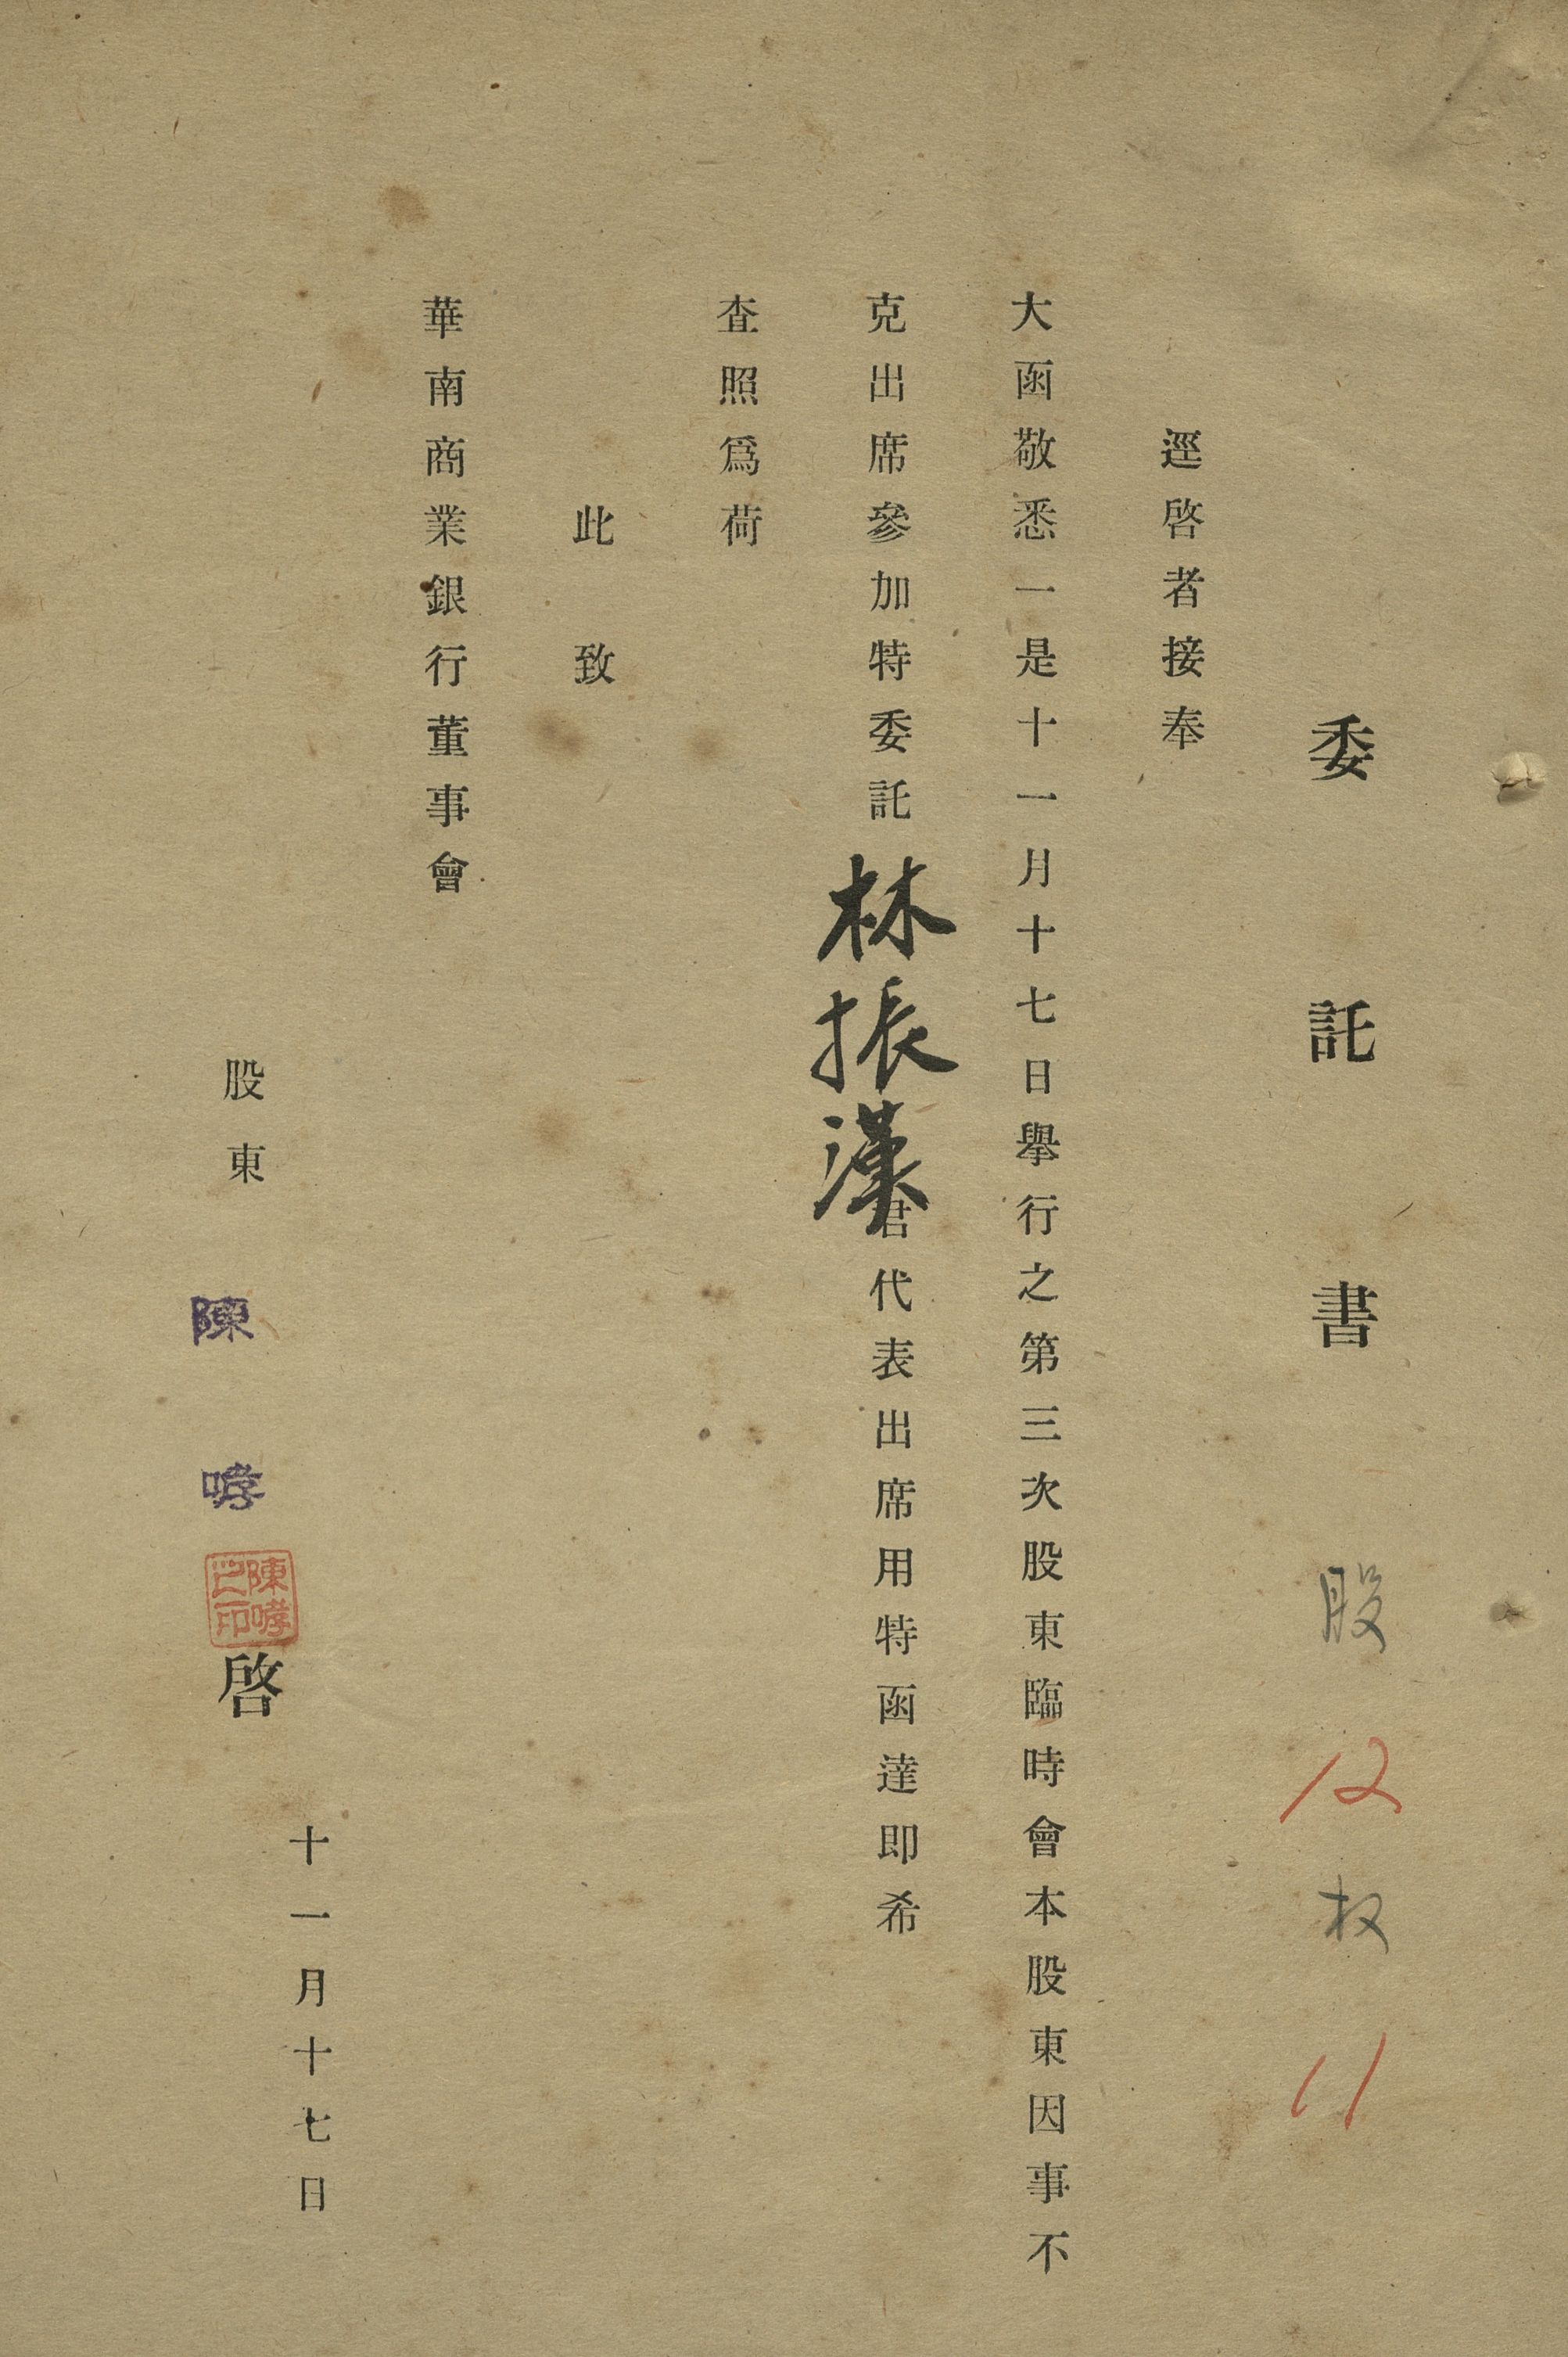 委託書 股 12 权 11
逕啓者接奉
大函敬悉一是十一月十七日舉行之第三次股東臨時會本股東因事不
克出席參加特委託林振漢君代表出席用特函達即希
查照爲荷
此致
華南商業銀行董事會
十一月十七日
股東 陳哮 啓
陳哮之印